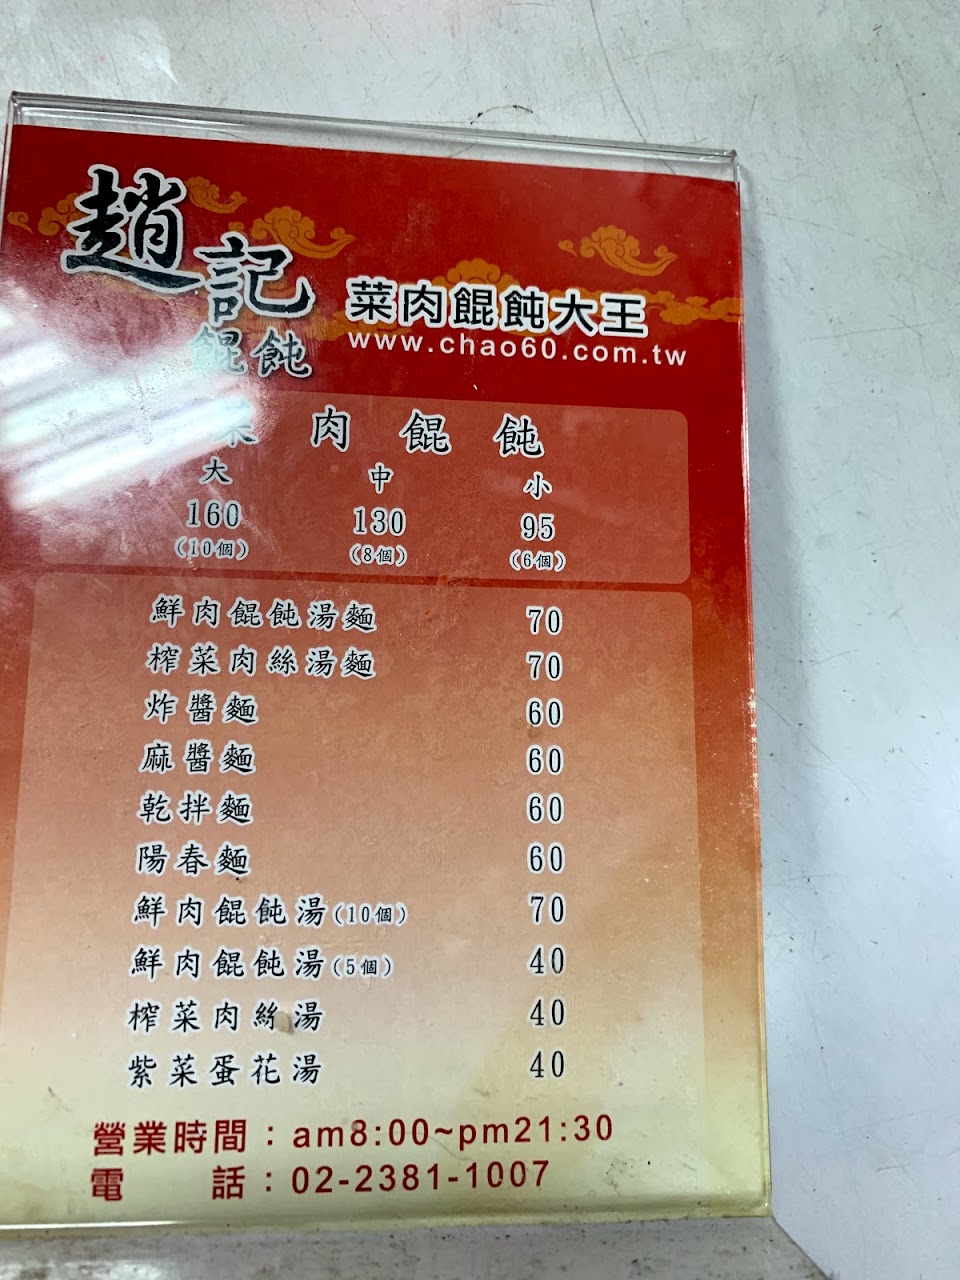 趙記
餛飩
菜肉餛飩大王
www.chao60.com.tw
菜肉餛飩
大 中 小
160 130 95
(10個) (8個) (6個)
鮮肉餛飩湯麵 70
榨菜肉絲湯麵 70
炸醬麵 60
麻醬麵 60
乾拌麵 60
陽春麵 60
鮮肉餛飩湯(10個) 70
鮮肉餛飩湯(5個) 40
榨菜肉絲湯 40
紫菜蛋花湯 40
營業時間：am8:00~pm21:30
電話：02-2381-1007